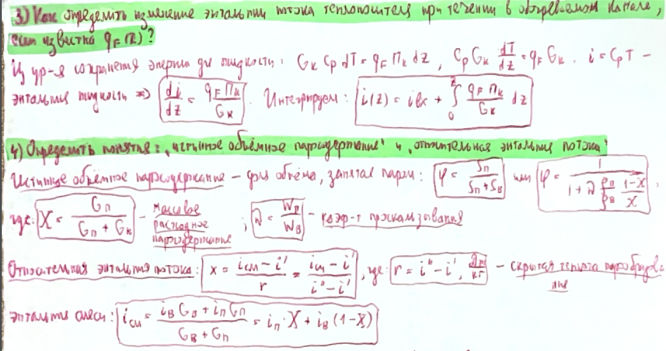 3) Как определить изменение энтальпии потока теплоносителя при течении в обогреваемом канале,
если известна q_F(z)?
Из ур-я сохранения энергии для жидкости: G_к C_p dT = q_F П_к dz, C_p G_к dT/dz = q_F G_к. i = C_p T –
энтальпия жидкости ⇒ di/dz = q_F П_к / G_к. Интегрируем: i(z) = i_вх + ∫₀ᶻ q_F П_к / G_к dz
4) Определить понятия: „истинное объёмное паросодержание" и „относительная энтальпия потока"
Истинное объёмное паросодержание – доля объёма, занятая паром: φ = S_п / (S_п + S_в) или φ = 1 / (1 + λ ρ_п/ρ_в (1-X)/X),
где: X = G_п / (G_п + G_к) – массовое расходное паросодержание; λ = W_п / W_в – коэф-т проскальзывания
Относительная энтальпия потока: x = (i_см – i') / r = (i_см – i') / (i'' – i'), где: r = i'' – i', Дж/кг – скрытая теплота парообразования
энтальпия смеси: i_см = (i_в G_в + i_п G_п) / (G_в + G_п) = i_п · X + i_в (1-X)